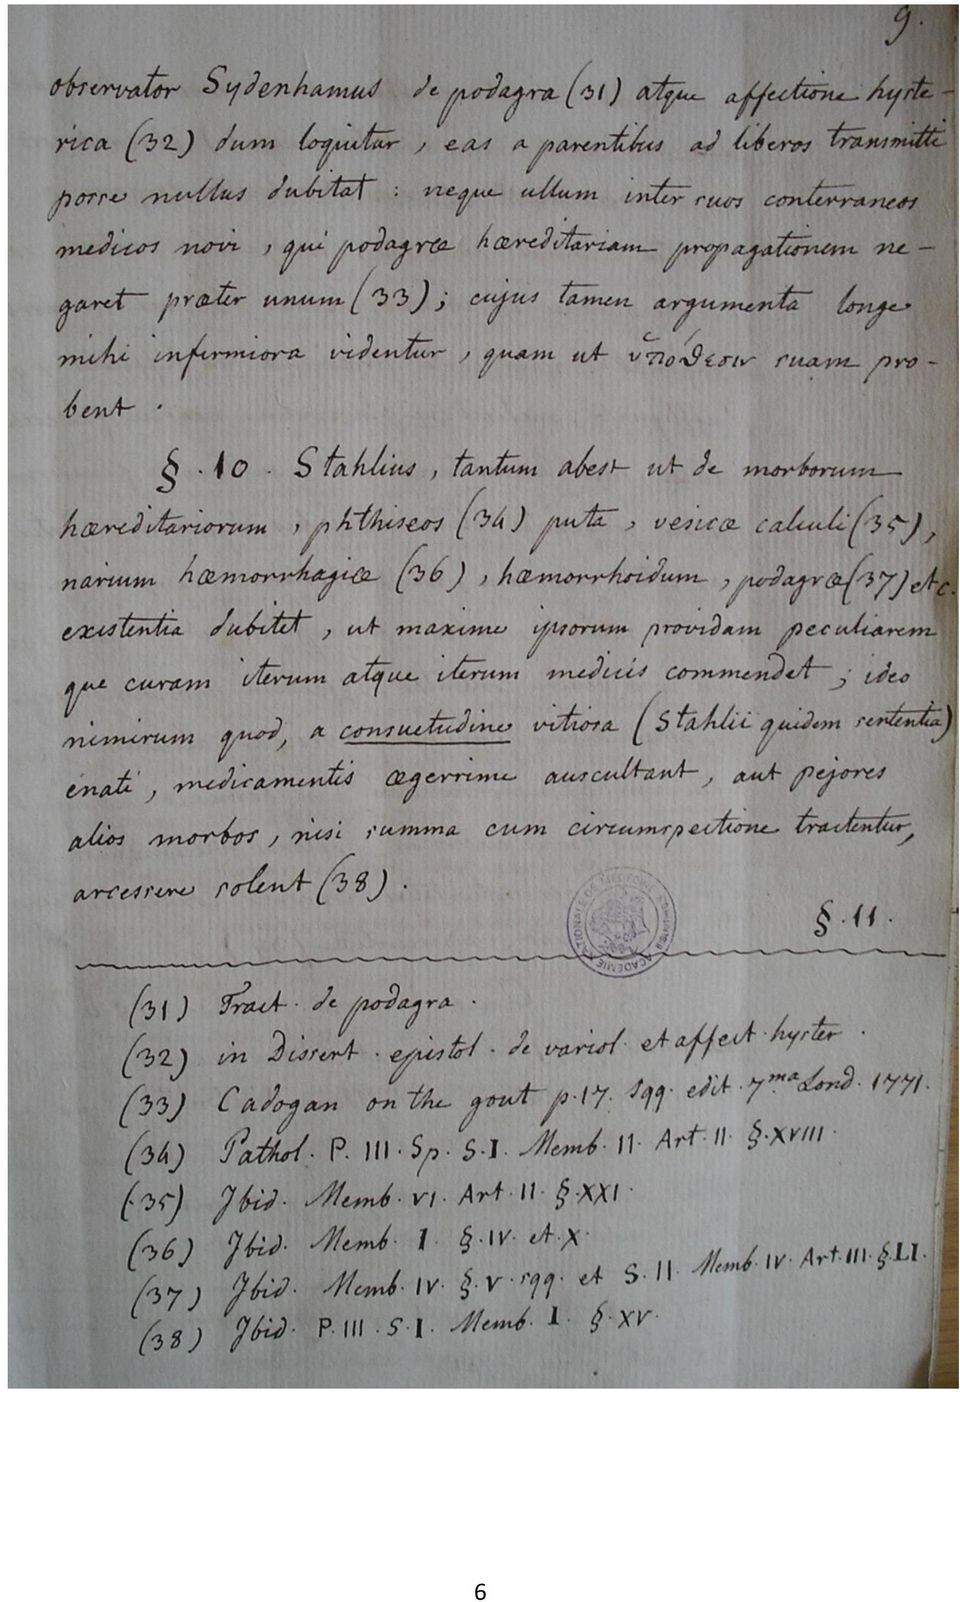 9.
observator Sydenhamus de podagra (31) atque affectione hyste-
rica (32) dum loquitur, eas a parentibus ad liberos transmitti
posse nullus dubitat : neque ullum inter suos conterraneos
medicos novi, qui podagræ hæreditariam propagationem ne-
garet præter unum (33); cujus tamen argumenta longe
mihi infirmiora videntur, quam ut ὑπόθεσιν suam pro-
bent.
§. 10. Stahlius, tantum abest ut de morborum
hæreditariorum, phthiseos (34) puta, vesicæ calculi (35),
narium hæmorrhagiæ (36), hæmorrhoidum, podagræ (37) etc.
existentia dubitet, ut maxime ipsorum providam peculiarem
que curam iterum atque iterum medicis commendet; ideo
nimirum quod, a consuetudine vitiosa (Stahlii quidem sententia)
enati, medicamentis ægerrime auscultant, aut pejores
alios morbos, nisi summa cum circumspectione tractentur,
arcessere solent (38).
§. 11.
ACADEMIE NATIONALE DE MEDECINE
(31) Tract. de podagra.
(32) in Dissert. epistol. de variol. et affect. hyster.
(33) Cadogan on the gout p. 17. sqq. edit. 7ma Lond. 1771.
(34) Pathol. P. III. Sp. S. I. Memb. II. Art. II. §. XVIII.
(35) Ibid. Memb. VI. Art. II. §. XXI.
(36) Ibid. Memb. I. §. IV. et X.
(37) Ibid. Memb. IV. §. V. sqq. et S. II. Memb. IV. Art. III. §. LI.
(38) Ibid. P. III. S. I. Memb. I. §. XV.
6